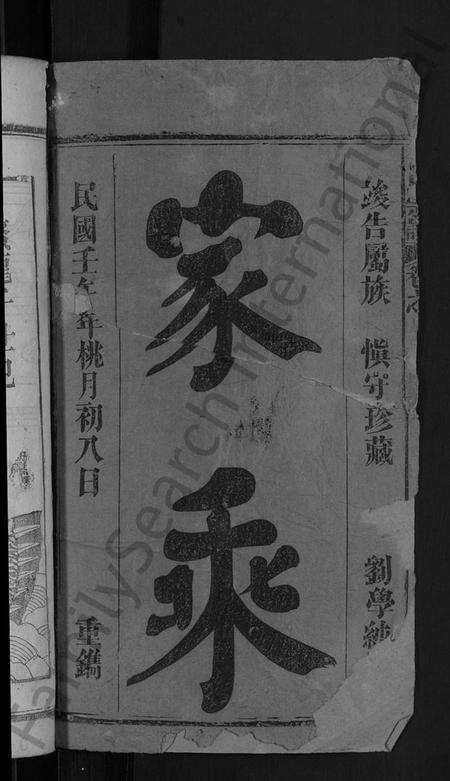 竣告屬族 慎守珍藏 劉學純
家乘
民國壬午年桃月初八日 重鐫
FamilySearch International